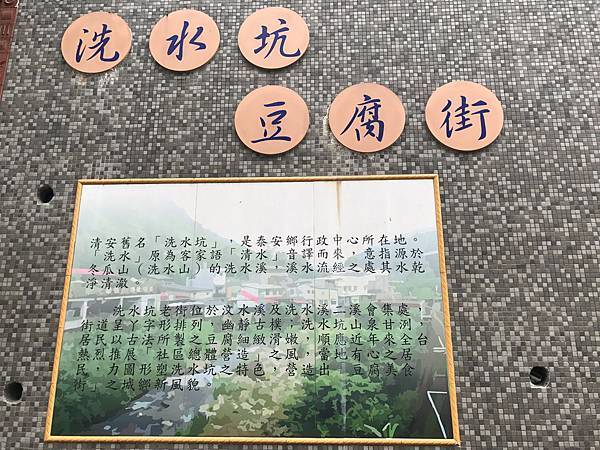 洗水坑
豆腐街
清安舊名「洗水坑」，是泰安鄉行政中心所在地。
「洗水」原為客家語「清水」音譯而來，意指源於
冬瓜山（洗水山）的洗水溪，溪水流經之處其水乾
淨清澈。
洗水坑老街位於汶水溪及洗水溪二溪會集處，
街道呈丫字形排列，幽靜古樸；洗水坑山泉甘洌，
居民以古法所製之豆腐細緻滑嫩，順應近年來全台
熱烈推展「社區總體營造」之風，當地有心之居
民，力圖形塑洗水坑之特色，營造出「豆腐美食
街」之城鄉新風貌。